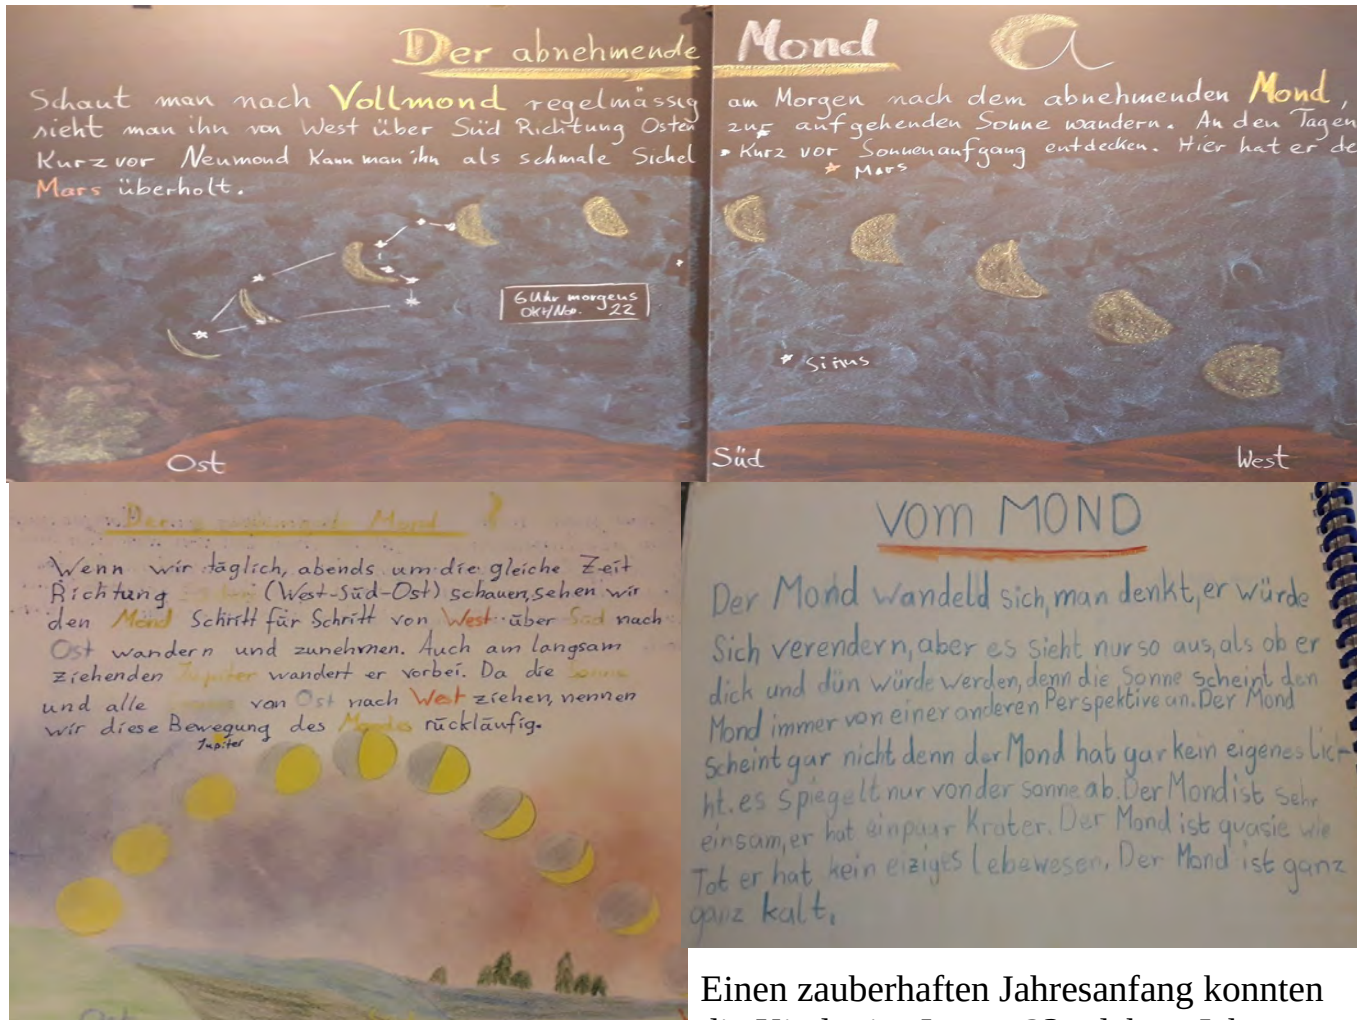 Der abnehmende Mond
Schaut man nach Vollmond regelmässig am Morgen nach dem abnehmenden Mond,
sieht man ihn von West über Süd Richtung Osten zur aufgehenden Sonne wandern. An den Tagen
Kurz vor Neumond kann man ihn als schmale Sichel Kurz vor Sonnenaufgang entdecken. Hier hat er de
Mars überholt.
Mars
6 Uhr morgens
Okt/Nov. 22
Sirius
Ost
Süd
West
Der zunehmende Mond
Wenn wir täglich, abends um die gleiche Zeit
Richtung (West-Süd-Ost) schauen, sehen wir
den Mond Schritt für Schritt von West über Süd nach
Ost wandern und zunehmen. Auch am langsam
ziehenden Jupiter wandert er vorbei. Da die Sonne
und alle von Ost nach West ziehen, nennen
wir diese Bewegung des Mondes rückläufig.
Jupiter
Ost
Vom MOND
Der Mond wandeld sich, man denkt, er würde
Sich verendern, aber es sieht nur so aus, als ob er
dick und dün würde werden, denn die Sonne scheint den
Mond immer von einer anderen Perspektive an. Der Mond
scheint gar nicht denn der Mond hat gar kein eigenes lic-
ht. es spiegelt nur von der sonne ab. Der Mond ist sehr
einsam, er hat ein paar Krater. Der Mond ist quasie wie
Tot er hat kein eiziges lebewesen. Der Mond ist ganz
ganz kalt.
Einen zauberhaften Jahresanfang konnten